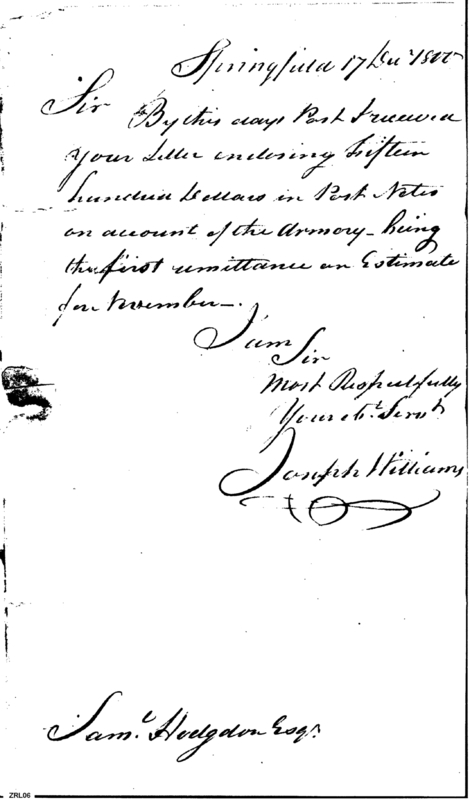 Springfield 17 Decr 1800
Sir
By this days Post I received
your Letter enclosing Fifteen
hundred Dollars in Post Notes
on account of the Armory - being
the first remittance on Estimate
for November -.
I am
Sir
Most Respectfully
Your Ob.t Serv.t
Joseph Williams
Sam.l Hodgdon Esqr.
ZRL06